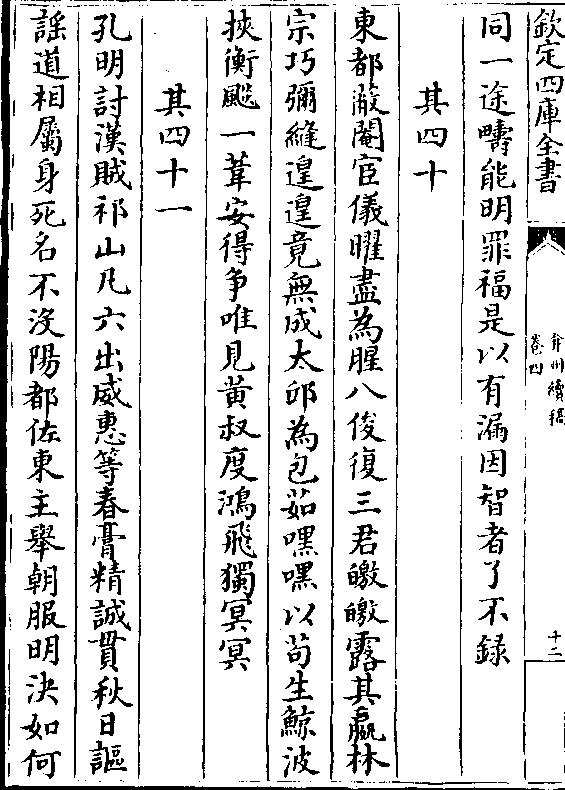 欽定四庫全書
弇州續稿
卷四
十二
同一途疇能明罪福是以有漏因智者了不録
其四十
東都蔽閹宦儀曜盡為腥八俊復三君皦皦露其羸林
宗巧彌縫遑遑竟無成太邱為包茹嘿嘿以苟生鯨波
挾衡颷一葦安得争唯見黄叔度鴻飛獨冥冥
其四十一
孔明討漢賊祁山凡六出威惠等春膏精誠貫秋日謳
謡道相屬身死名不沒陽都佐東主舉朝服明決如何